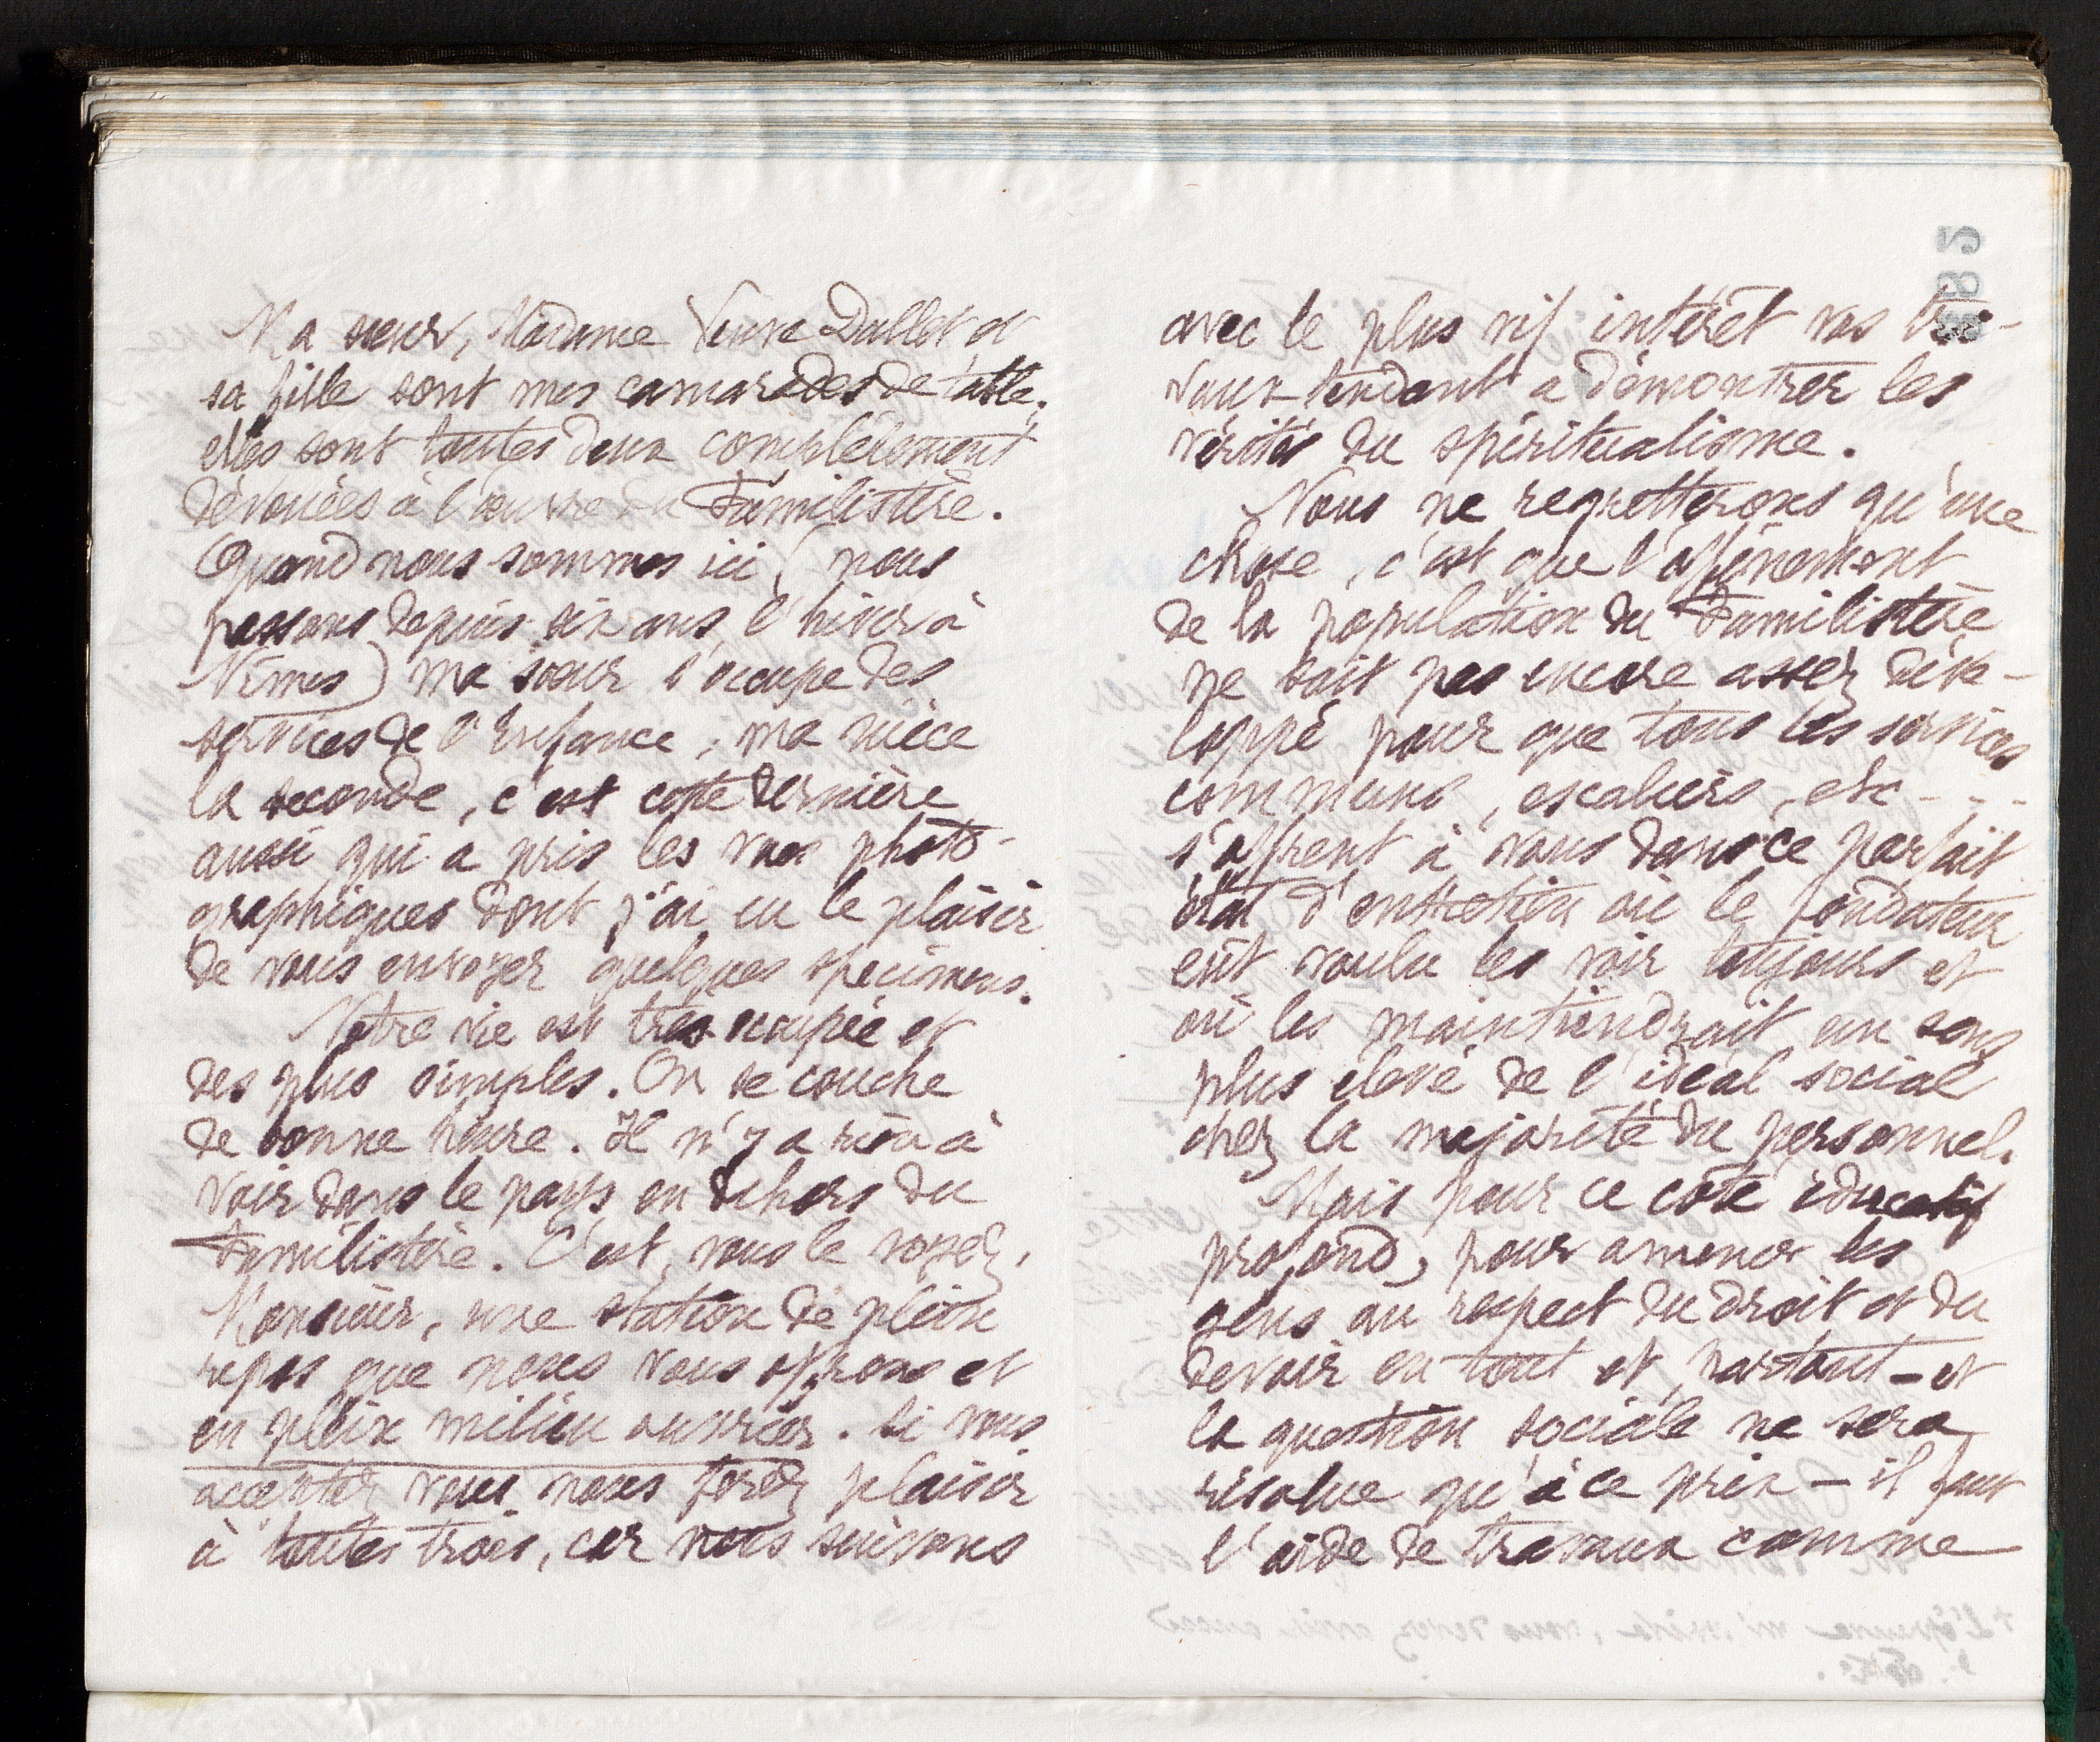 Ma sœur, Madame Veuve Dallet et
sa fille sont mes camarades de table,
elles sont toutes deux complètement
dévouées à l'œuvre du Familistère.
Quand nous sommes ici, (nous
passons depuis six ans l'hiver à
Nîmes) ma sœur s'occupe des
services de l'Enfance, ma nièce
la seconde, c'est cette dernière
aussi qui a pris les vues photo-
graphiques dont j'ai eu le plaisir
de vous envoyer quelques spécimens.
Notre vie est très occupée et
des plus simples. On se couche
de bonne heure. Il n'y a rien à
voir dans le pays en dehors du
Familistère. C'est, vous le voyez,
Monsieur, une station de plein
repos que nous vous offrons et
en plein milieu ouvrier. Si vous
acceptez vous nous ferez plaisir
à toutes trois, car nous suivons
avec le plus vif intérêt vos tra-
vaux tendant à démontrer les
vérités du spiritualisme.
Nous ne regretterons qu'une
chose, c'est que l'affinement
de la population du Familistère
ne soit pas encore assez déve-
loppé pour que tous les services
communs, escaliers, etc - - -
s'offrent à vous dans ce parfait
état d'entretien où le fondateur
eût voulu les voir toujours et
où les maintiendrait un sens
plus élevé de l'idéal social
chez la majorité du personnel.
Mais pour ce côté éducatif
profond, pour amener les
gens au respect du droit et du
devoir en tout et partout - et
la question sociale ne sera
résolue qu'à ce prix - il faut
l'aide de travaux comme